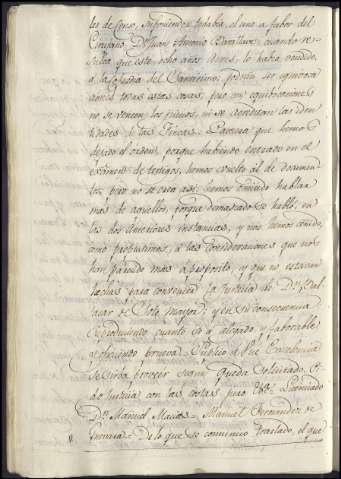 les de suso, suponiendo todabia, el uno a fabor del
Cirujano, Dn Juan Antonio Barallave, cuando re-
sulta que este, ocho años antes, lo habia vendido,
a la Cofradia del Santísimo; podrán ser equivoca
ciones todas estas cosas, pero con equibocaciones
no se vencen los pleitos, ni se acreditan las iden
tidades de las Fincas. Parecia que hemos
dejado el orden, porque habiendo entrado en el
examen de testigos, hemos vuelto al de documen
tos, pero no se crea así; hemos omitido hablar
más de aquellos, porque demasiado se habló, en
las dos anteriores instancias, y nos hemos ceñido,
como prometimos, a las Consideraciones que nos
han parecido más a proposito, y que no estaran
hechas para convencer la Justicia de Dn
de Soto mayor; y en su consecuencia
reproduciendo cuanto es a alegado y faborable
y ofreciendo prueva Suplico a Vue Excelencia
se sirba proveer como queda solicitado, es de
Justicia con las costas, juro etc. Licenciado
Dn Manuel Macias = Manuel Fernandez de
= De lo que se comunico traslado, el que